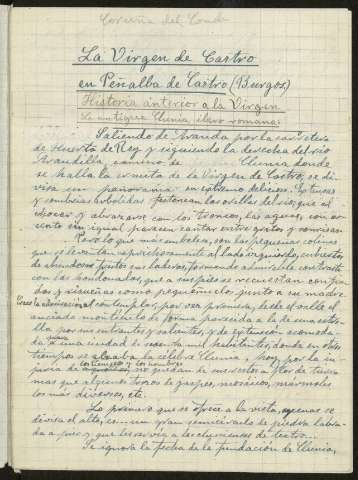 Coruña del Conde
La Virgen de Castro
en Peñalba de Castro (Burgos)
Historia anterior a la Virgen
La antigua Clunia, ilavo romana:
Saliendo de Aranda por la carretera
de Huerta de Rey y siguiendo la derecha del río
Arandilla, camino de Clunia donde
se halla la ermita de la Virgen de Castro, se di-
visa un panorama en extremo delicioso. Extensas
y sombrías arboledas festonean las orillas del río, que al
chocar y abrazarse con los troncos, las aguas, con acento
sin igual parecen cantar entre gritos y sonrisas
Pero lo que más embelesa, son las pequeñas colinas
que se levantan caprichosamente al lado izquierdo, cubiertas
de abundosos frutos sus laderas, formando admirable contraste
con las hondonadas, que a sus pies se recuestan confia-
das y risueñas como pequeñuelos, junto a su madre.
Crece la admiración al contemplar, por vez primera, desde el valle el
anciado montículo de forma parecida a la de una estre-
lla por sus entrantes y salientes, y de extensión acomoda-
da a una ciudad de sesenta mil habitantes, donde en otros
tiempos se alzaba la célebre Clunia, hoy, por la in-
juria de los tiempos y los hombres no quedan de muestra a flor de tierra
mas que algunos trozos de jaspes, mosaicos, mármoles
los más diversos, etc.
Lo primero que se ofrece a la vista, apenas se
divisa el alto, es un gran semicírculo de piedra labra-
da a pico y que les servía a los clunienses de teatro...
Se ignora la fecha de la fundación de Clunia,